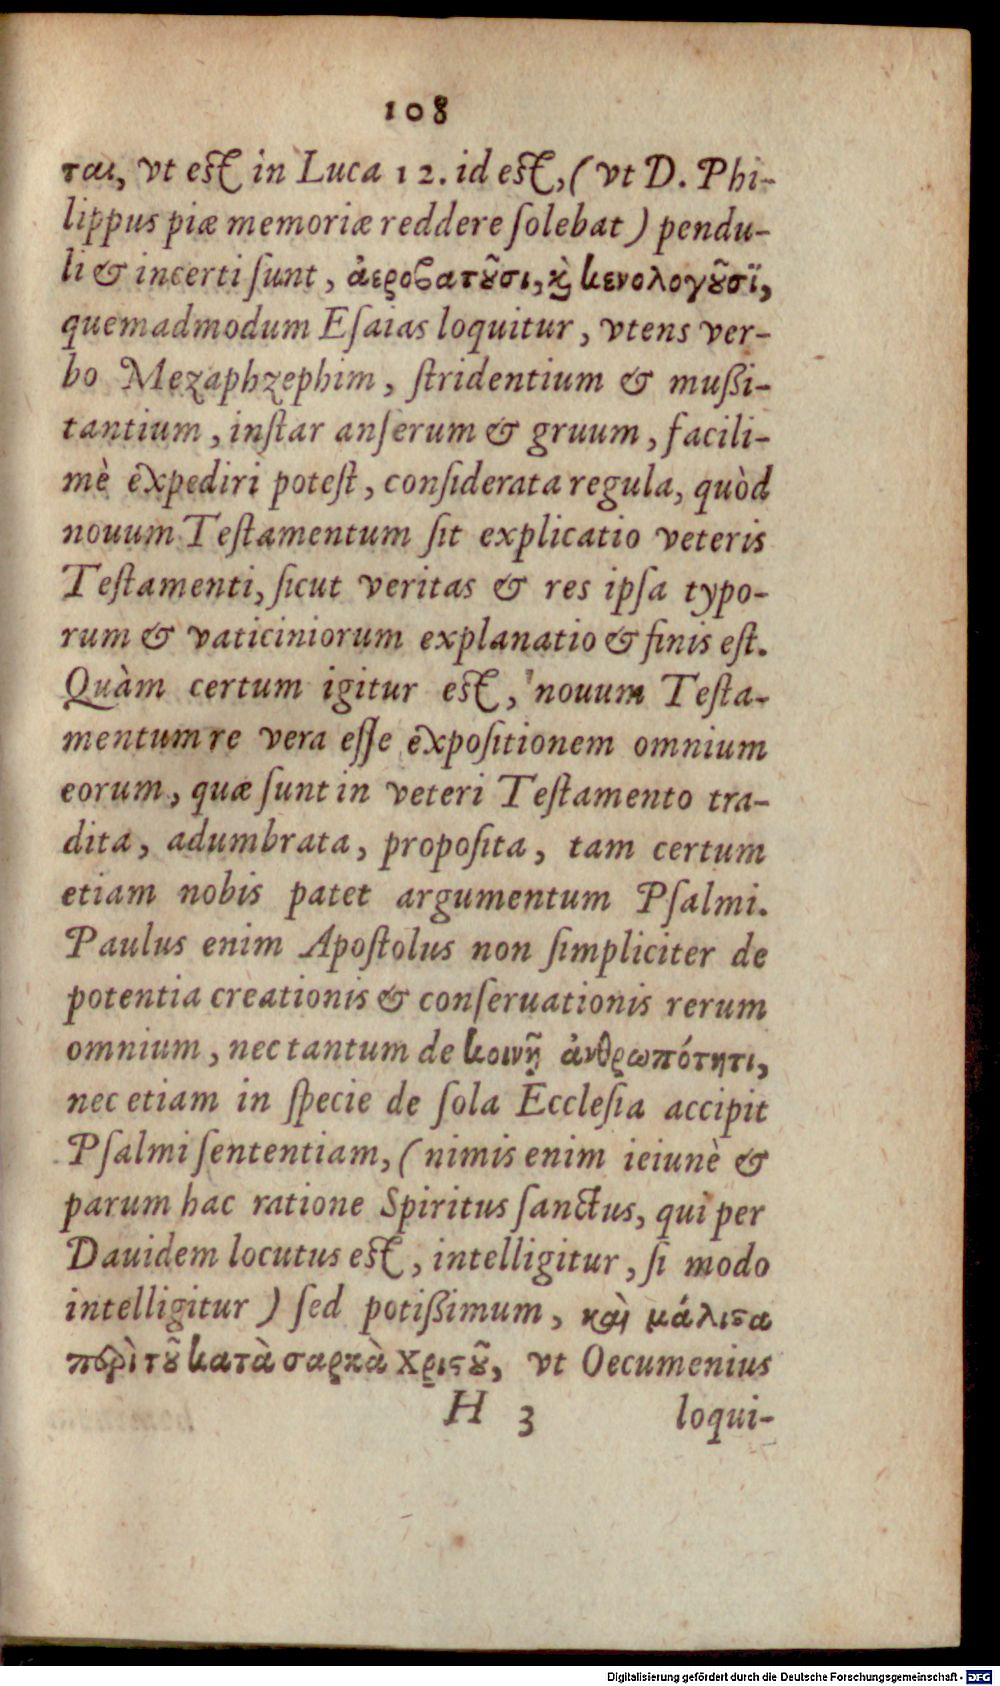 108
ται, vt est in Luca 12. id est, (vt D. Phi-
lippus piæ memoriæ reddere ſolebat) pendu-
li & incerti ſunt, ἀεροβατοῦσι, καὶ κενολογοῦσϊ,
quemadmodum Eſaias loquitur, vtens ver-
bo Mezaphzephim, ſtridentium & mußi-
tantium, inſtar anſerum & gruum, facili-
mè expediri poteſt, conſiderata regula, quòd
nouum Teſtamentum ſit explicatio veteris
Teſtamenti, ſicut veritas & res ipſa typo-
rum & vaticiniorum explanatio & finis eſt.
Quàm certum igitur est, nouum Teſta-
mentum re vera eſſe expoſitionem omnium
eorum, quæ ſunt in veteri Teſtamento tra-
dita, adumbrata, propoſita, tam certum
etiam nobis patet argumentum Pſalmi.
Paulus enim Apoſtolus non ſimpliciter de
potentia creationis & conſeruationis rerum
omnium, nec tantum de κοινῇ ἀνθρωπότητι,
nec etiam in ſpecie de ſola Eccleſia accipit
Pſalmi ſententiam, (nimis enim ieiunè &
parum hac ratione Spiritus ſanctus, qui per
Dauidem locutus est, intelligitur, ſi modo
intelligitur) ſed potißimum, καὶ μάλιϛα
περὶ τοῦ κατὰ σαρκὰ Χριϛοῦ, vt Oecumenius
H 3 loqui-
Digitalisierung gefördert durch die Deutsche Forschungsgemeinschaft - DFG